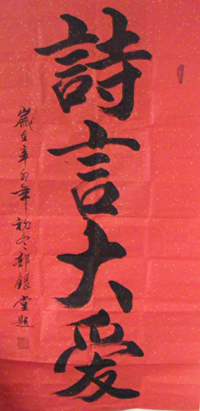 詩言大爱
歲在辛卯年初冬郝銀堂題